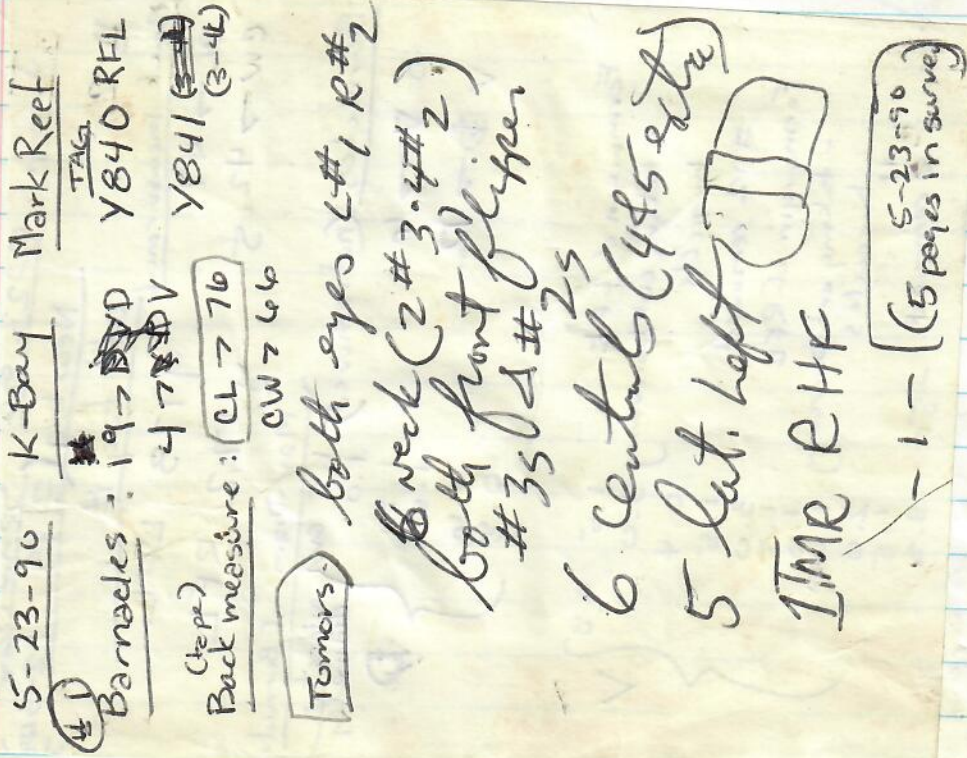 5-23-90 K-Bay Mark Reef
#1
TAG
Barnacles: 19 > D Y840 RFL
4 > V Y841 (3-4L)
(tape)
Back measure: CL > 76
CW > 66
Tumors. both eyes L#1 R#2
neck (2#3·4#2)
both front flipper
#3s & #2s
6 centrals (4&5 extra)
5 lat. Left
IMR RHF
- 1 - 5-23-90
(5 pages in survey)